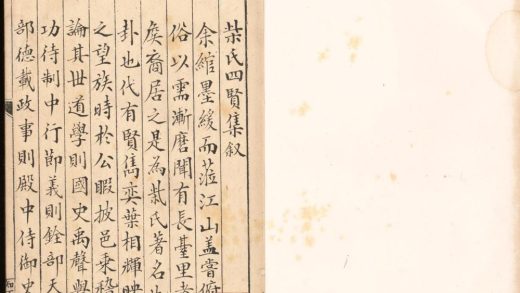 柴氏四賢集叙
余綰墨綬而蒞江山盖嘗俯
俗以需漸磨聞有長臺里者
矦裔居之是為柴氏著名
卦也代有賢雋奕葉相輝映
之望族時於公暇披邑乗
論其世道學則國史禹聲學
功待制中行節義則銓部天
部德載政事則殿中侍御史